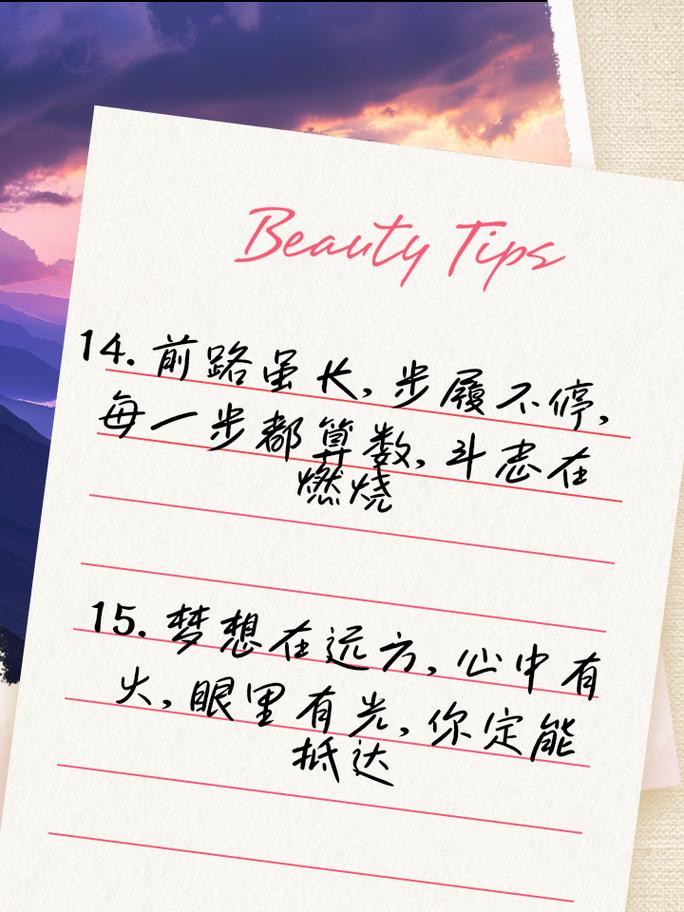 Beauty Tips
14. 前路虽长,步履不停,
每一步都算数,斗志在
燃烧
15. 梦想在远方,心中有
火,眼里有光,你定能
抵达